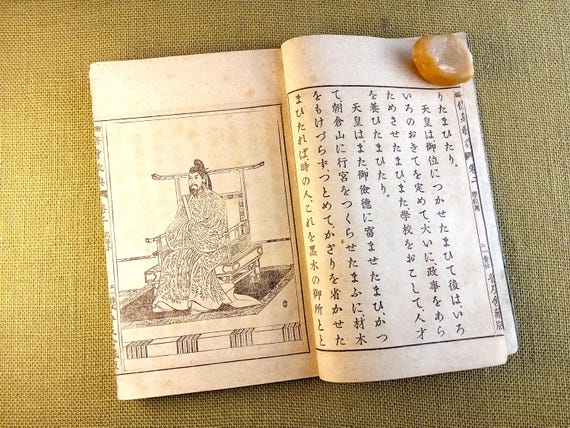 りたまひたり。
天皇は御位につかせたまひて後は、いろ
いろのおきてを定めて、大いに政事をあら
ためさせたまひ、また學校をおこして、人才
を養ひたまひたり。
天皇は、また御儉德に富ませたまひ、かつ
て、朝倉山に行宮をつくらせたまふに、材木
をもけづらず、つとめてかざりを省かせた
まひたれば、時の人、これを黒木の御所とと